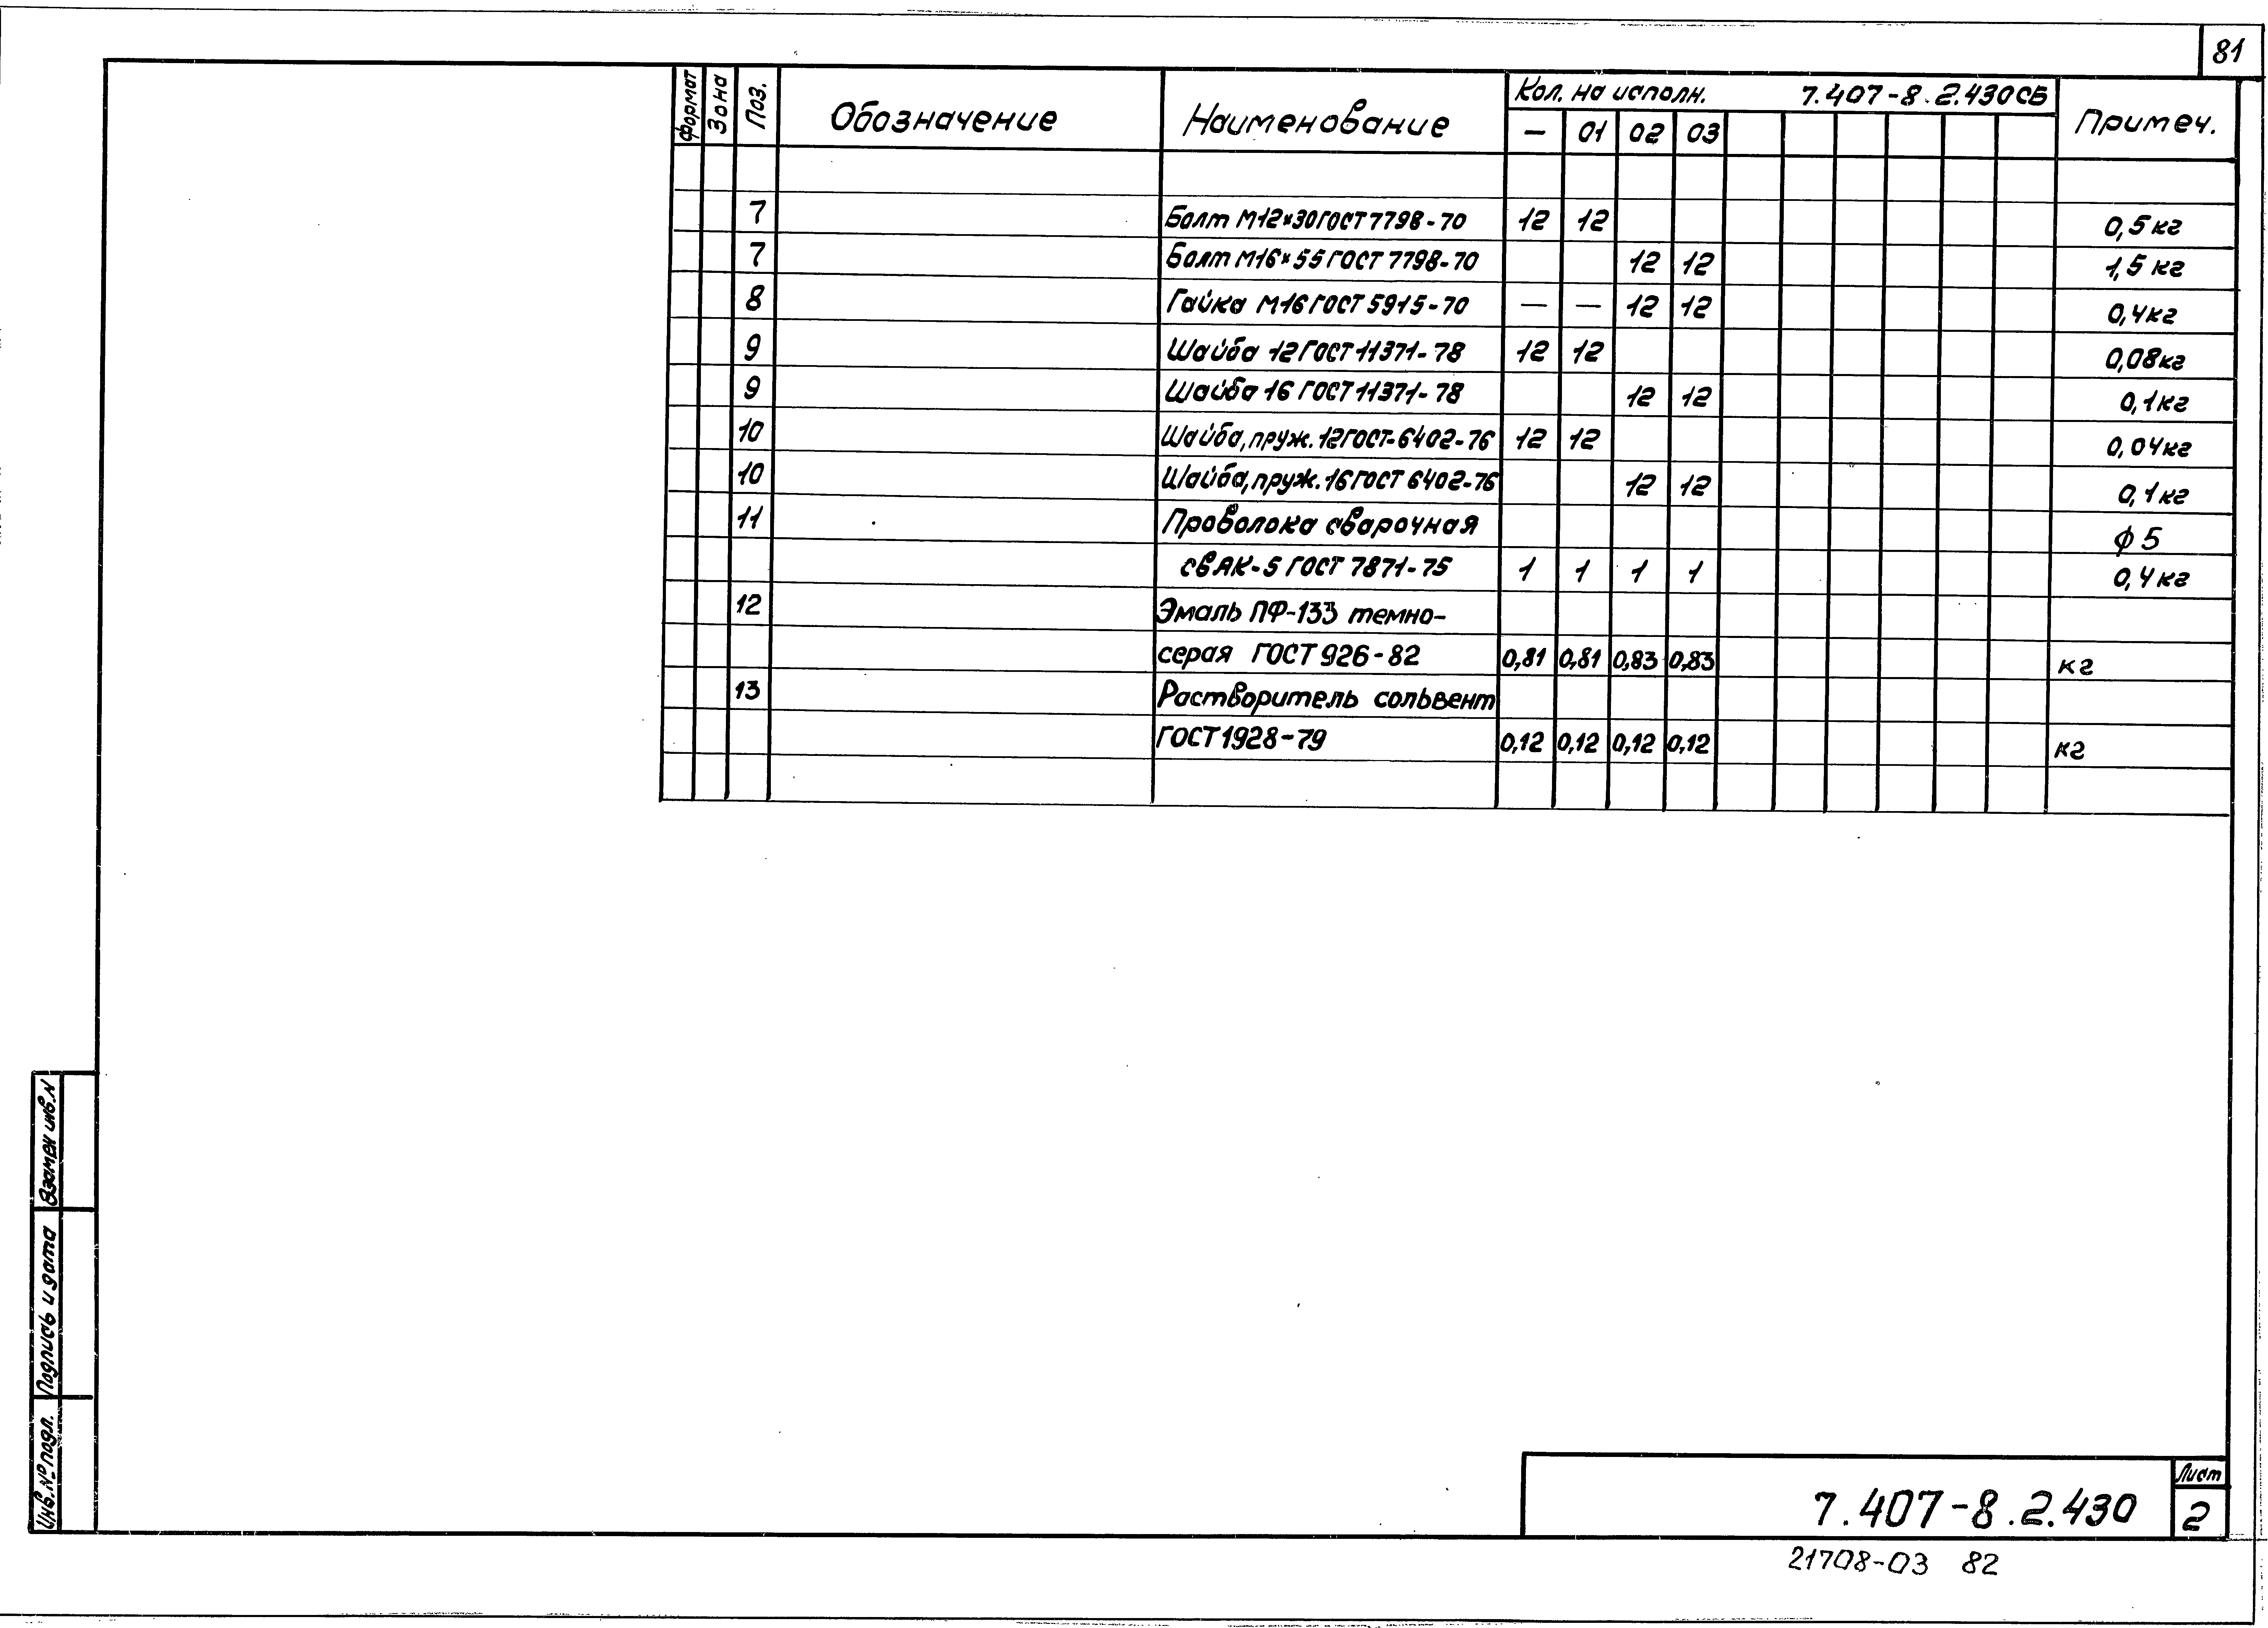 81
Формат Зона Поз. Обозначение Наименование Кол. на исполн. 7.407-8.2.430СБ Примеч.
— 01 02 03
7 Болт М12×30 ГОСТ 7798-70 12 12 0,5кг
7 Болт М16×55 ГОСТ 7798-70 12 12 1,5 кг
8 Гайка М16 ГОСТ 5915-70 — — 12 12 0,4кг
9 Шайба 12 ГОСТ 11371-78 12 12 0,08кг
9 Шайба 16 ГОСТ 11371-78 12 12 0,1кг
10 Шайба, пруж. 12 ГОСТ-6402-76 12 12 0,04кг
10 Шайба, пруж. 16 ГОСТ 6402-76 12 12 0,1кг
11 Проволока сварочная ϕ 5
свАК-5 ГОСТ 7871-75 1 1 1 1 0,4кг
12 Эмаль ПФ-133 темно-
серая ГОСТ 926-82 0,81 0,81 0,83 0,83 кг
13 Растворитель сольвент
ГОСТ 1928-79 0,12 0,12 0,12 0,12 кг
Взамен инв.N
Подпись и дата
Инв.№ подл.
7.407-8.2.430
Лист
2
21708-03 82